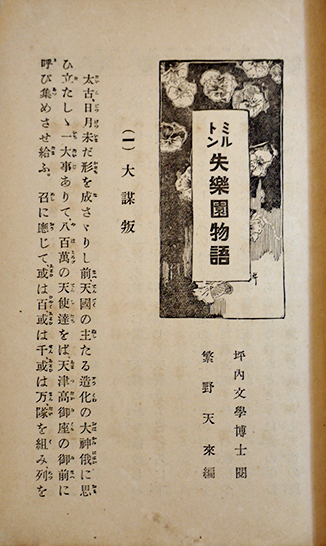 ミルトン
失樂園物語
坪內文學博士閱
繁野天來編
(一) 大謀叛
太古日月未だ形を成さゞりし前天國の主たる造化の大神俄に思
ひ立たしゝ一大事ありて、八百萬の天使達をば、天津高御座の御前に
呼び集めさせ給ふ。召に應じて、或は百或は千或は万、隊を組み列を